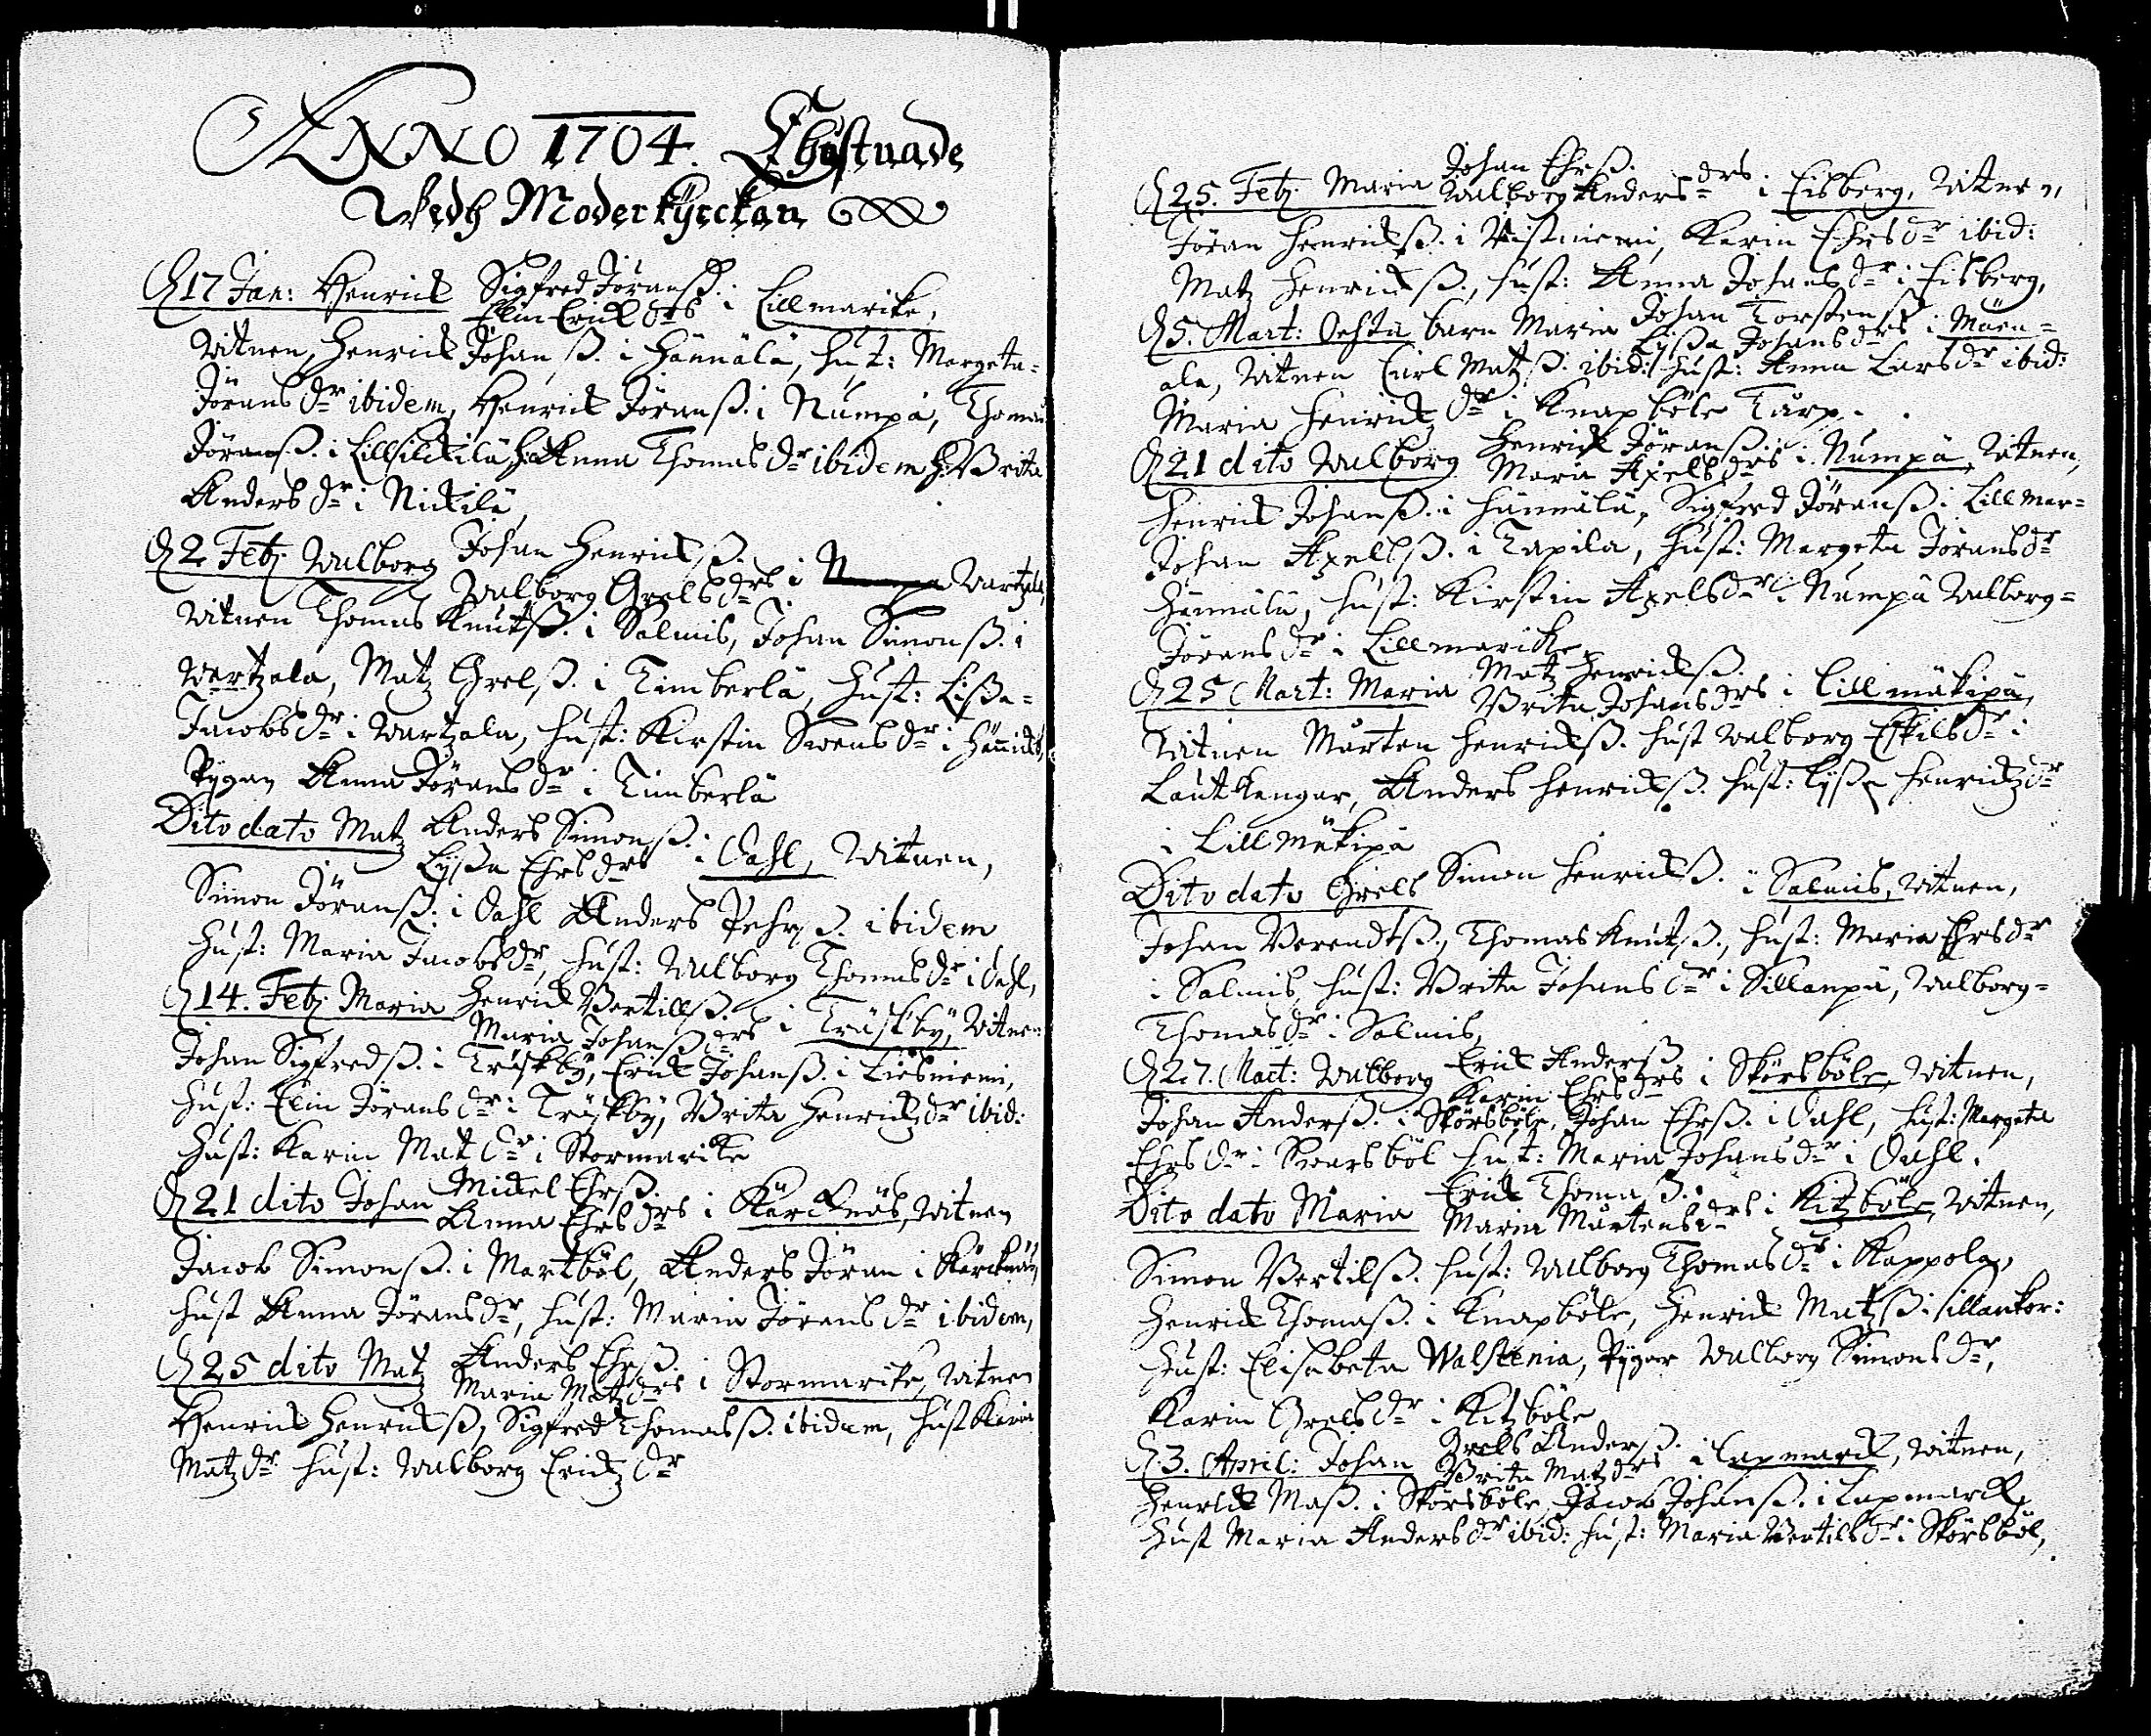 ANNO 1704. Christnade
Widh Moderkyrckan
D 17 Jan: Henrick Sigfred Jöranß.
Elin Erickdrs i Lillmarike,
Witnen, Henrick Johanß. i Hännälä, Hust: Margeta-
Jöransdr ibidem, Henrick Jöranß. i Numpä, Thomas
Jöranß. i H: Anna Thomasdr ibidem H: Brita
Andersdr i Nickilä,
D 2. Feb: Walborg Johan Henrickß.
Walborg Grelsdrs i Wartzala,
Witnen Thomas Knutß. i Salmis, Johan Simonß. i
Wartzala, Matz Grelß. i Timberlä, Hust: Lißa-
Jacobsdr i Wartzala, Hust: Kirstin Swensdr i
Pigan Anna Jöransdr i Timberlä
Dito dato Matz Anders Simonß.
Lyßa Ehrsdrs i Dahl, Witnen,
Simon Jöranß. i Dahl Anders Pehrß. ibidem
Hust: Maria Jacobsdr, Hust: Walborg Thomasdr i Dahl,
D 14. Feb: Maria Henrick Bertillß.
Maria Johanßdrs i Träskby, Witnen:
Johan Sigfredß. i Träskby, Erick Johanß. i Liesniemi,
Hust: Elin Jöransdr i Träskby, Brita Henrickzdr ibid:
Hust: Karin Matdr i Stormarike
D 21 dito Johan Mickel Ehrß.
Anna Ehrsdrs i Kärcknäs, Witnen
Jacob Simonß. i Martböl, Anders Jöran i Kärcknäs,
Hust Anna Jöransdr, Hust: Maria Jöransdr ibidem,
D 25 dito Matz Anders Ehrß.
Maria Matzdrs i Stormarike, Witnen
Henrick Henrickß, Sigfred Thomasß. ibidem, Hust Karin
Matzdr Hust: Walborg Erickzdr
D 25. Feb: Maria Johan Ehrß.
Walborg Andersdrs i Eisberg, Witnen,
Jöran Henrickß. i Ristniemi, Karin Ehrsdr ibid:
Matz Henrickß., Hust: Anna Johansdr i Eisberg,
D 5. Mart: Oechta barn Maria Johan Torstenß
Lyßa Johansdrs i Mäen-
ala, Witnen Carl Matzß. ibid: Hust: Anna Larsdr ibid:
Maria Henrickzdr i Knapböle Tårp.
D 21 dito Walborg Henrick Jöranß.
Maria Axelsdrs i Numpä, Witnen,
Henrick Johanß. i Hännälä, Sigfred Jöranß. i Lillmar-
Johan Axellß. i Tapila, Hust: Margeta Jöransdr
Hännälä, Hust: Kirstin Axelsdr i Numpä Walborg-
Jöransdr i Lillmarike,
D 25 Mart: Maria Matz Henrickß.
Brita Johansdrs i Lillmäkipä,
Witnen Mårten Henrickß. Hust Walborg Eskilsdr i
Lautkangar, Anders Henrickß. Hust: Lyßa Henrickzdr
i Lillmäkipä
Dito dato Grels Simon Henrickß. i Salmis, Witnen,
Johan Berendtß., Thomas Knutß., Hust: Maria Ehrsdr
i Salmis, Hust: Brita Johansdr i Sillanpä, Walborg-
Thomasdr i Salmis,
D 27. Mart: Walborg Erick Anderß
Karin Ehrsdrs i Skörsböle, Witnen,
Johan Anderß. i Skörsböle, Johan Ehrß. i Dahl, Hust: Margeta
Ehrsdr i Swarsböl Hust: Maria Johansdr i Dahl.
Dito dato Maria Erick Thomaß.
Maria Mårtensdrs i Kitzböle, Witnen,
Simon Bertilß. Hust: Walborg Thomasdr i Kappola,
Henrick Thomaß. i Knapböle, Henrick Matzß i sillankor:
Hust: Elisabeta Walstenia, Pigor Walborg Simonsdr,
Karin Grelsdr i Kitzböle
D. 3. April: Johan Grels Anderß.
Brita Matzdrs i Lapmarck, Witnen,
Henrick Maß. i Skörsböle, Jacob Johanß. i Lapmarck,
Hust Maria Andersdr ibid: Hust: Maria Bertilsdr i Skörsböl,